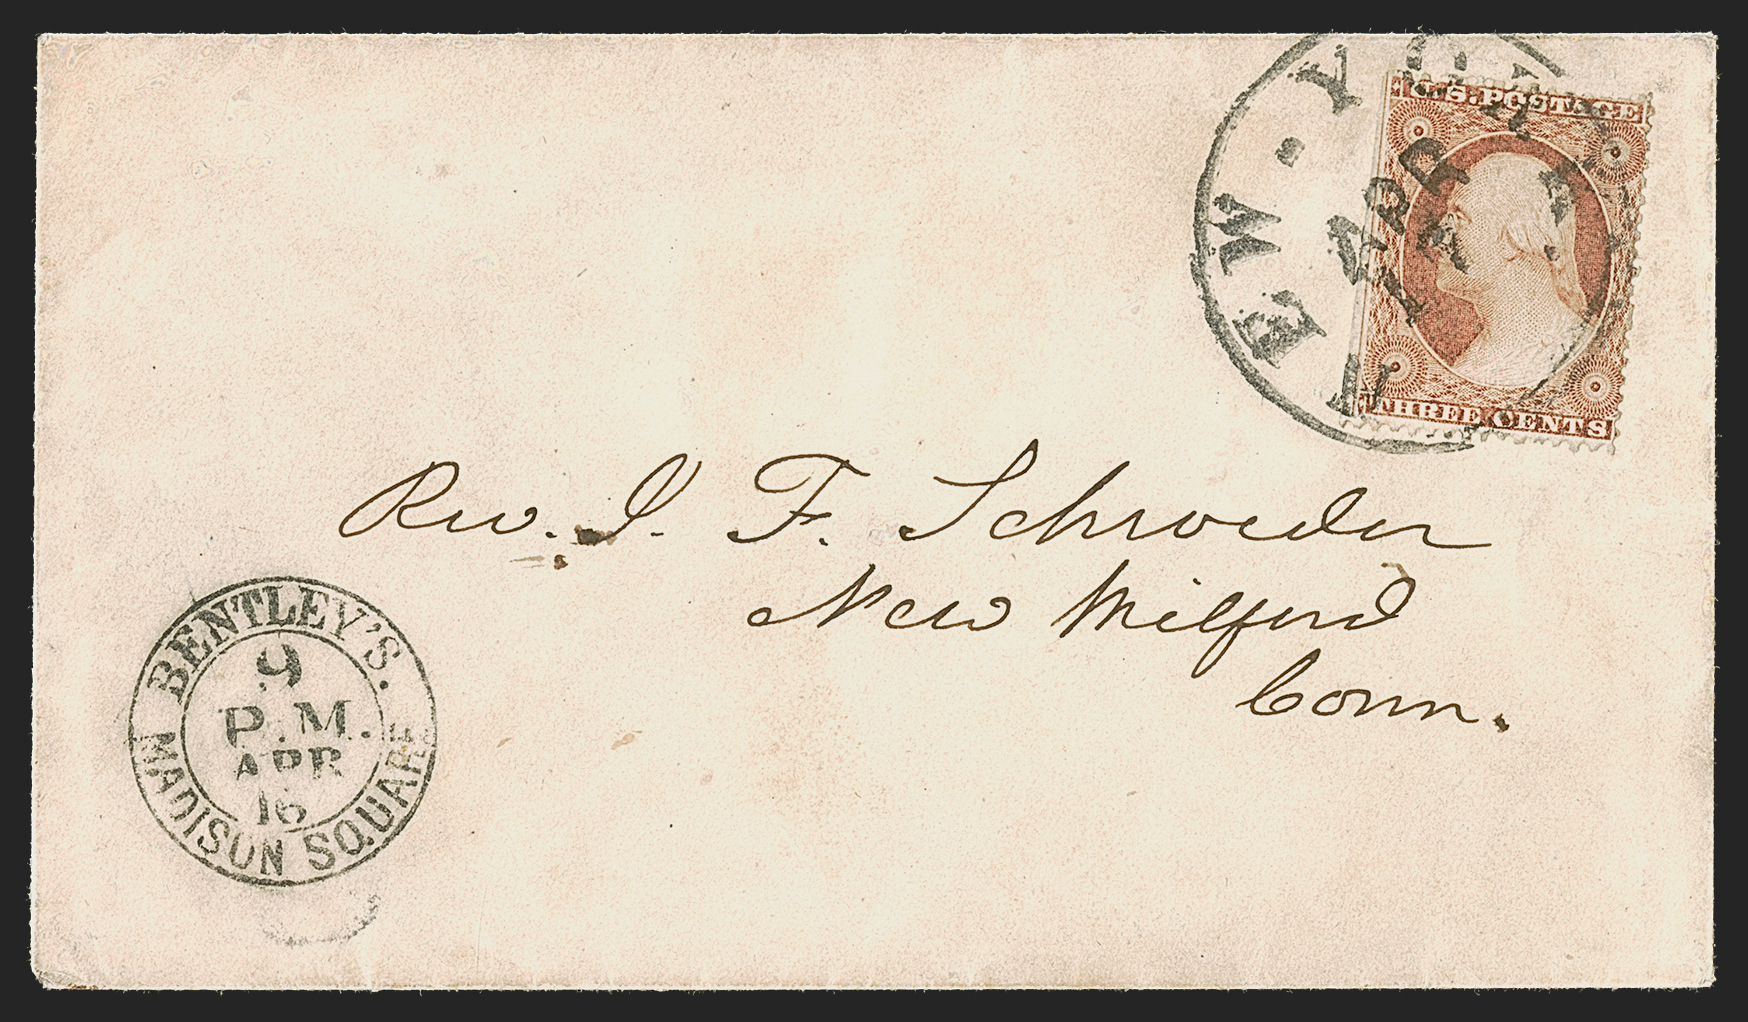 NEW-YORK
APR
17
U.S. POSTAGE
THREE CENTS
Rev. J. F. Schroeder
New Milford
Conn.
BENTLEY'S.
9
P.M.
APR
16
MADISON SQUARE